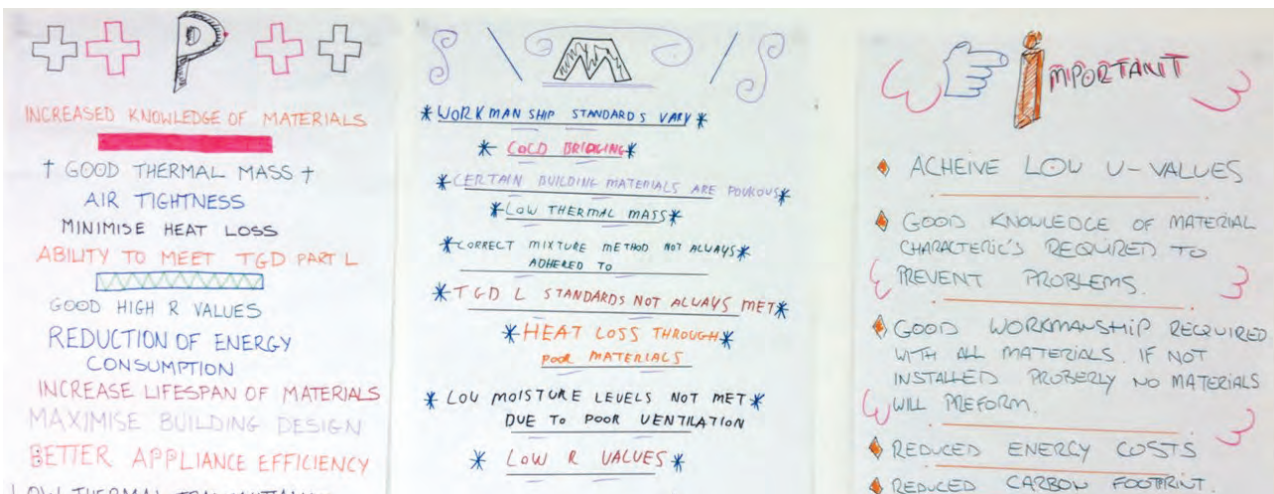 P
INCREASED KNOWLEDGE OF MATERIALS
GOOD THERMAL MASS
AIR TIGHTNESS
MINIMISE HEAT LOSS
ABILITY TO MEET TGD PART L
GOOD HIGH R VALUES
REDUCTION OF ENERGY
CONSUMPTION
INCREASE LIFESPAN OF MATERIALS
MAXIMISE BUILDING DESIGN
BETTER APPLIANCE EFFICIENCY
LOW THERMAL
M
*WORKMAN SHIP STANDARDS VARY*
*COLD BRIDGING*
*CERTAIN BUILDING MATERIALS ARE POUROUS*
*LOW THERMAL MASS*
*CORRECT MIXTURE METHOD NOT ALWAYS*
ADHERED TO
*TGD L STANDARDS NOT ALWAYS MET*
*HEAT LOSS THROUGH*
POOR MATERIALS
*LOW MOISTURE LEVELS NOT MET*
DUE TO POOR VENTILATION
*LOW R VALUES*
iMPORTANT
ACHEIVE LOW U-VALUES
GOOD KNOWLEDGE OF MATERIAL
CHARACTERIC'S REQUIRED TO
PREVENT PROBLEMS.
GOOD WORKMANSHIP REQUIRED
WITH ALL MATERIALS. IF NOT
INSTALLED PROBERLY NO MATERIALS
WILL PREFORM.
REDUCED ENERGY COSTS
REDUCED CARBON FOOTPRINT.